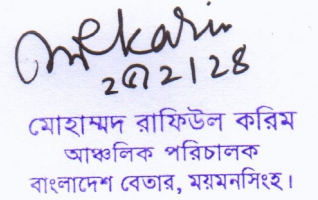 মোহাম্মদ রাফিউল করিম
আঞ্চলিক পরিচালক
বাংলাদেশ বেতার, ময়মনসিংহ।